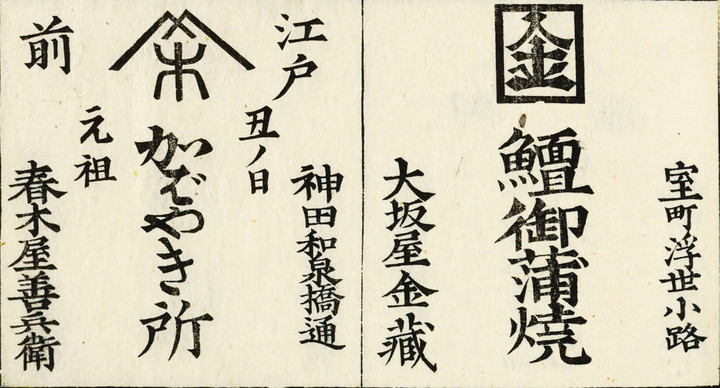 室町浮世小路
金
鱣御蒲焼
大坂屋金藏
江戸
前
神田和泉橋通
丑ノ日
元祖
かばやき所
春木屋善兵衛